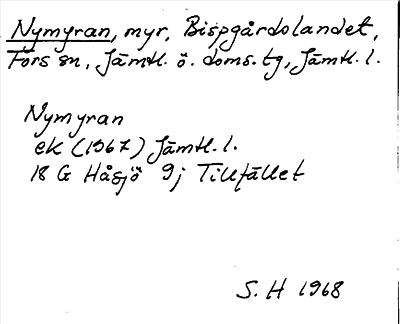 Nymyran, myr, Bispgårdolandet,
Fors sn, Jämtl. ö. doms.tg, Jämtl. l.
Nymyran
ek (1967) Jämtl. l.
18 G Håsjö 9j Tillfället
S. H 1968